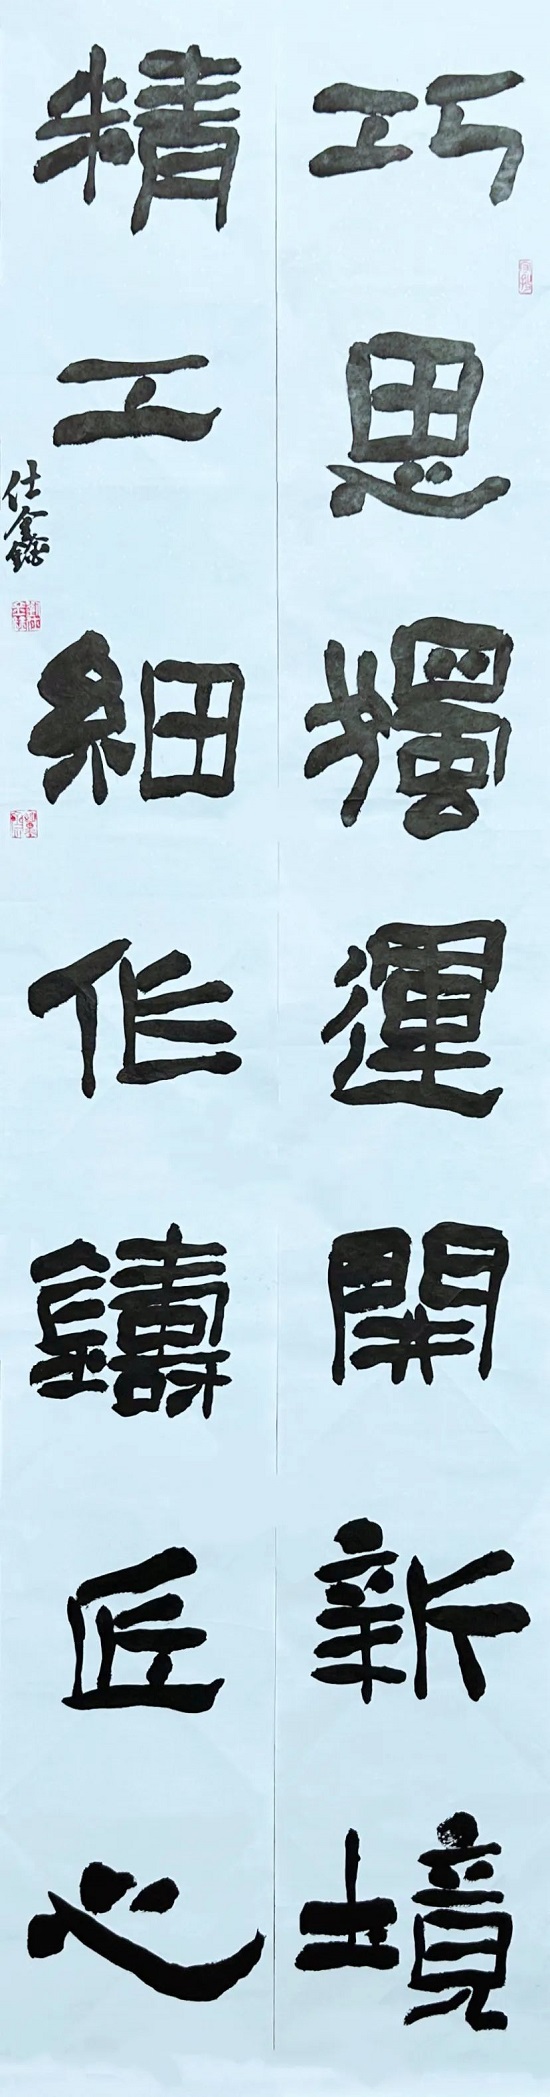 巧思獨運開新境
精工細作鑄匠心
仕鑫鏽